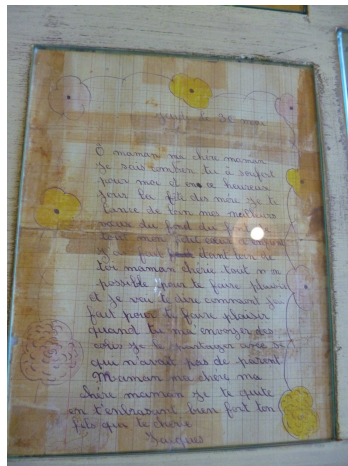 Jeudi le 30 mai
O maman ma chère maman
Je sais combien tu a soufert
pour moi et en ce heureux
jour la fête des mère je te
lance de loin mes meilleurs
vœux du fond du
tout mon petit cœur d'enfant
J'ai fait dant loin de
toi maman chérie tout mon
possible pour te faire plaisir
et je vai te dire comment j'ai
fait pour te faire plaisir
quand tu ma envoyer des
colis je le partager avec
qui n'avait pas de parent
Maman ma chère ma
chère maman je te quite
en t'embrasant bien fort ton
fils qui te chérie
Jacques